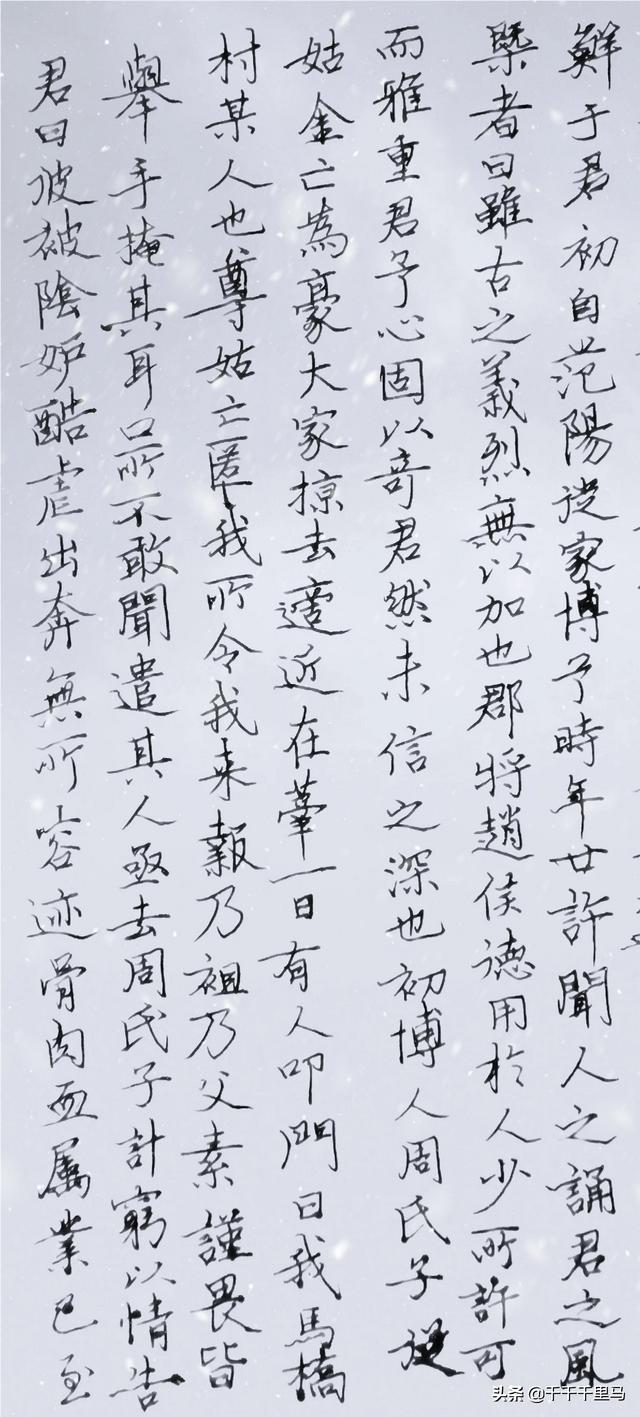 鮮于君初自范陽從家博予時年廿許聞人之誦君之風
槩者曰雖古之義烈無以加也郡將趙侯德用於人少所許可
而雅重君予心固以奇君然未信之深也初博人周氏子從
姑金亡為豪大家掠去蹇近在葦一日有人叩門曰我馬橋
村某人也尊姑亡匿我所令我来報乃祖乃父素謹畏皆
舉手掩其耳口所不敢聞遣其人亟去周氏子計窮以情告
君曰彼被陰妒酷虐出奔無所容迹骨肉血屬業已至
头条 @千千千里马